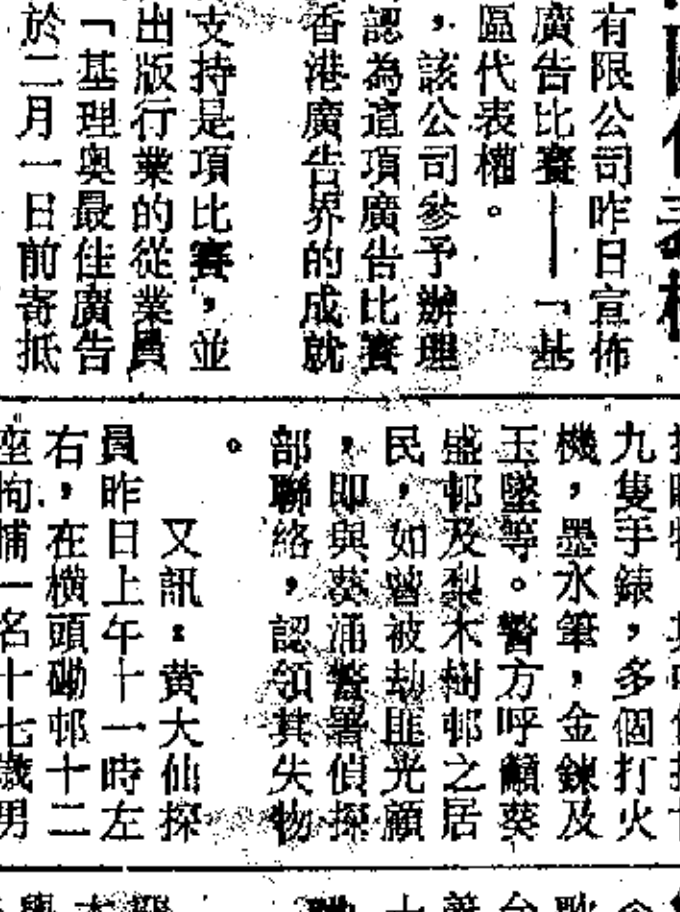 有限公司昨日宣佈
廣告比賽——「基
區代表權。
，該公司參予辦理
認為這項廣告比賽
香港廣告界的成就
支持是項比賽，並
出版行業的從業員
「基理奧最佳廣告
於二月一日前寄抵
九隻手錶，多個打火
機，墨水筆，金鍊及
玉墜等。警方呼籲葵
盛邨及梨木樹邨之居
民，如曾被劫匪光顧
，即與葵涌警署偵探
部聯絡，認領其失物
。
又訊：黃大仙探
員昨日上午十一時左
右，在橫頭磡邨十二
座拘捕一名十七歲男